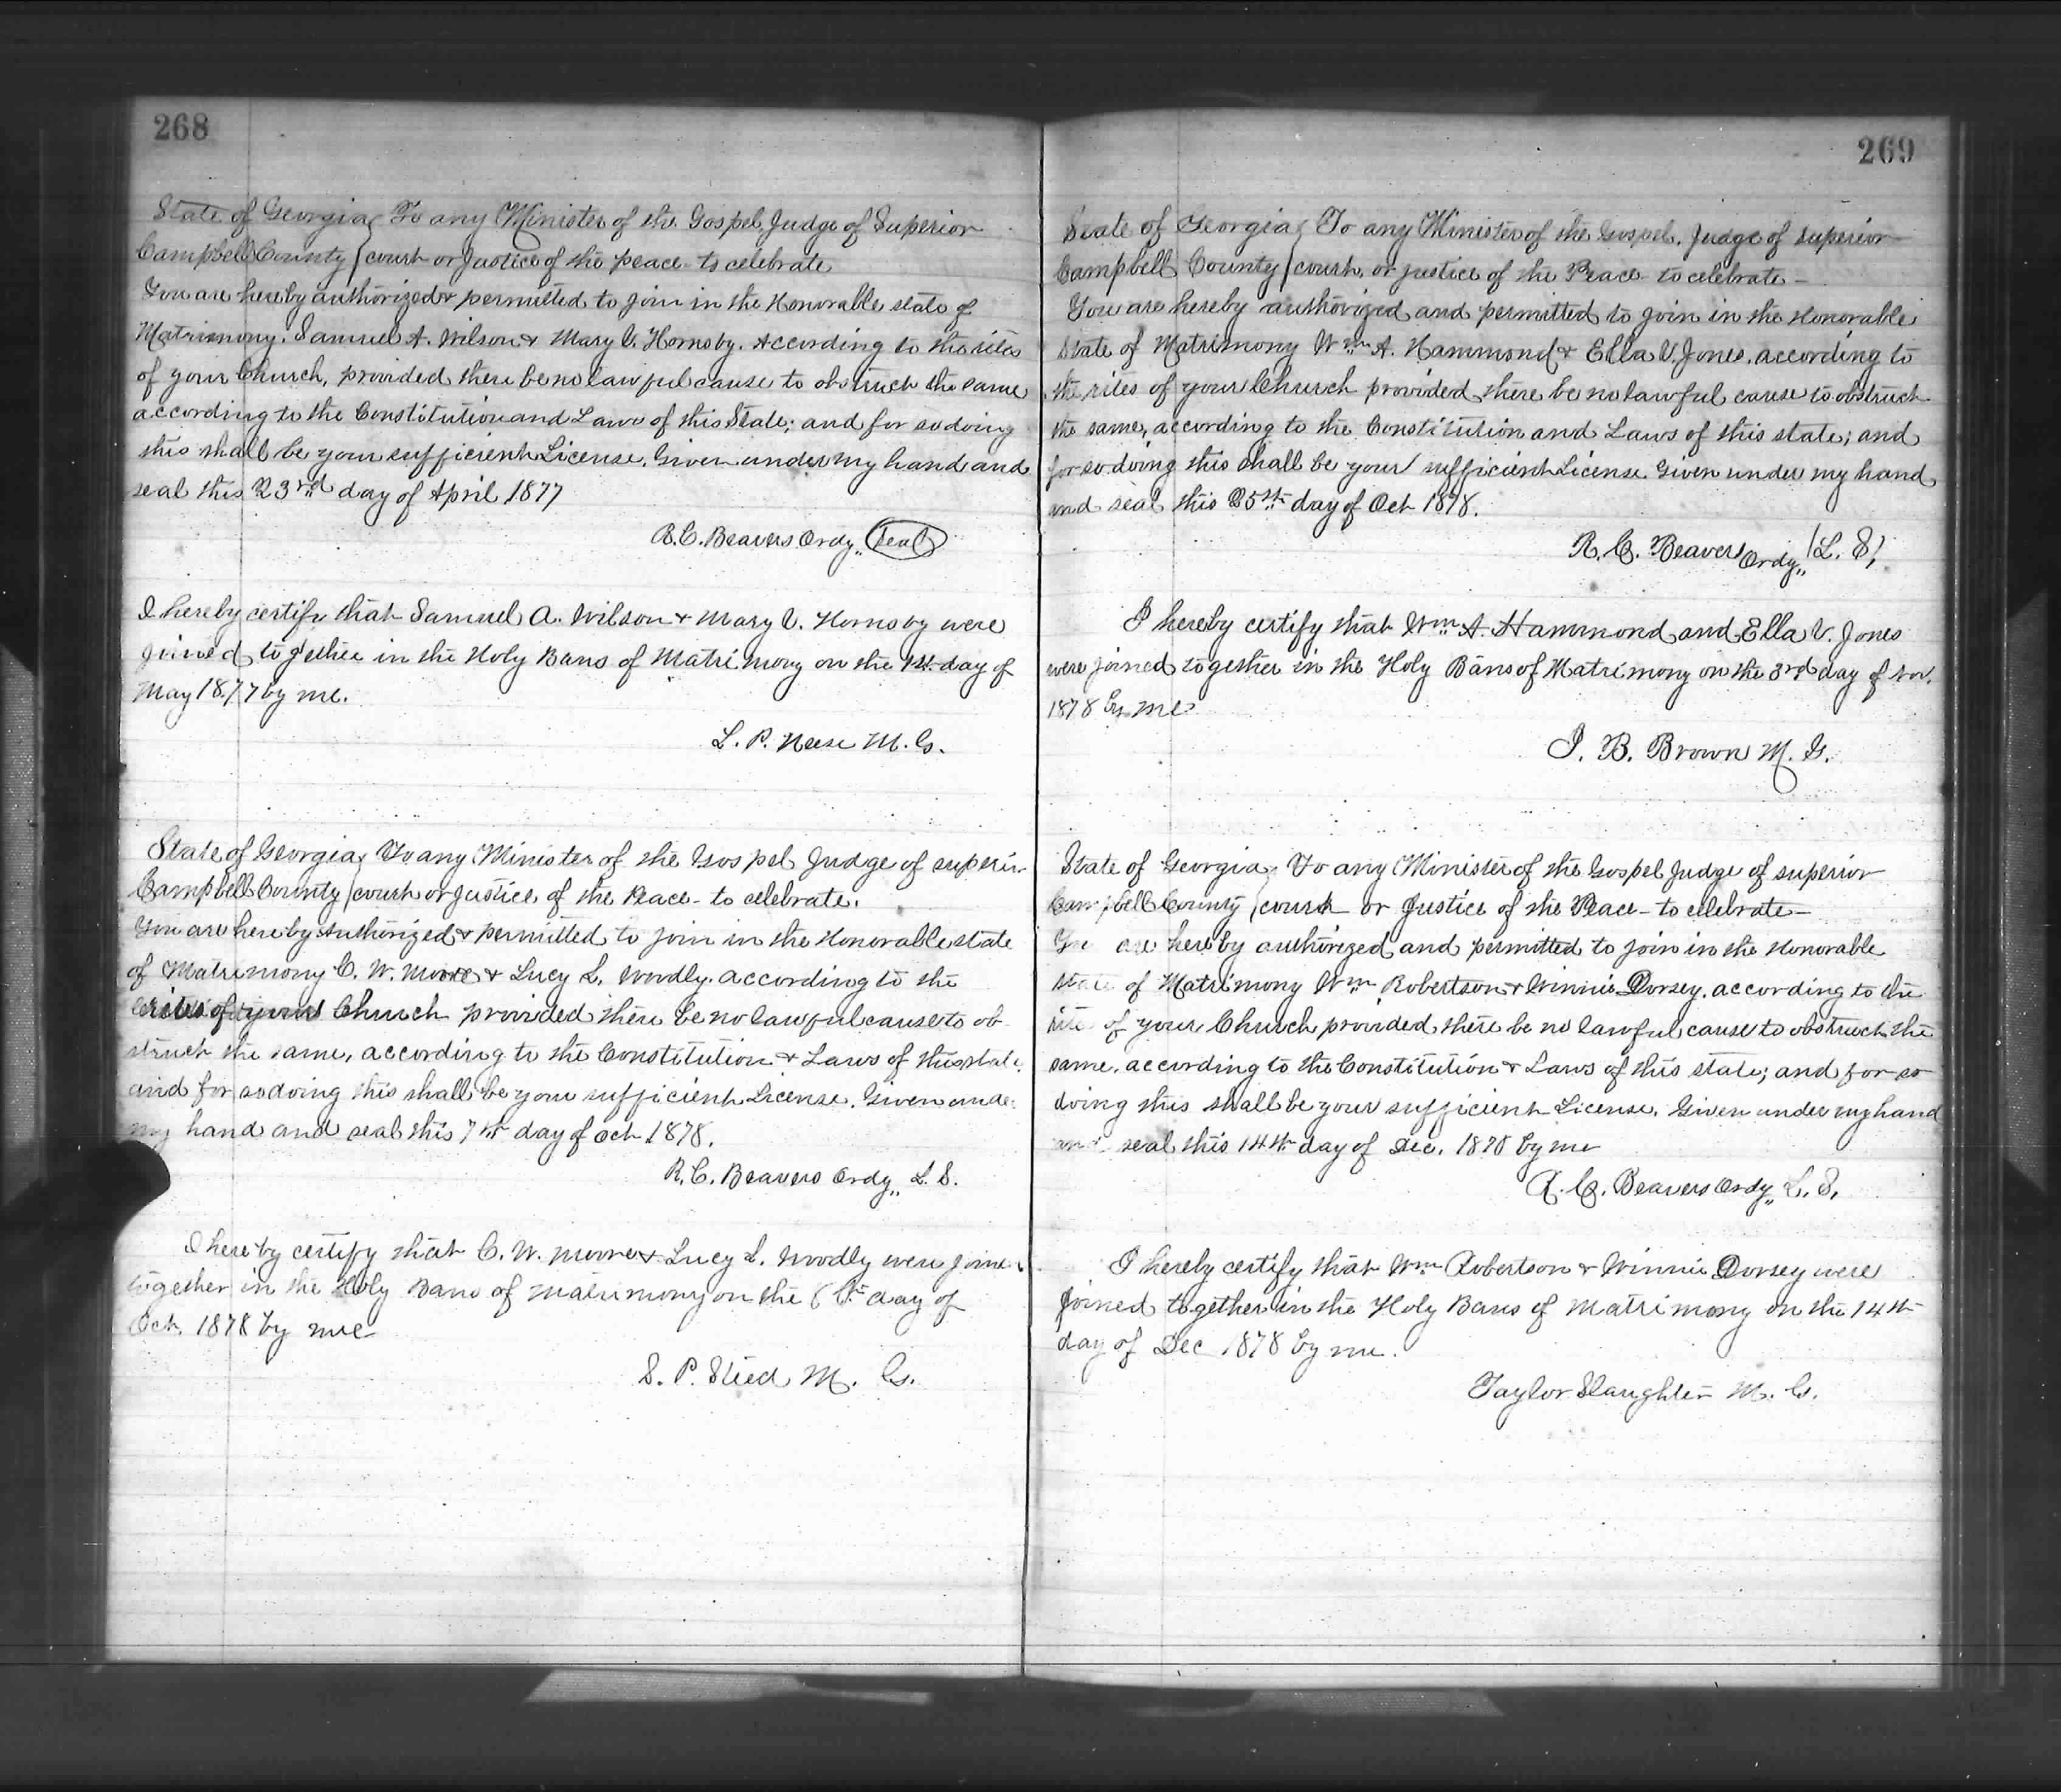 268
State of Georgia } To any Minister of the Gospel, Judge of Superior
Campbell County } court or Justice of the peace to celebrate
You are hereby authorized & permitted to join in the Honorable state of
Matrimony. Samuel A. Wilson & Mary V. Hornsby. According to the rites
of your Church, provided there be no lawful cause to obstruct the same
according to the Constitution and Laws of this State; and for so doing
this shall be your sufficient License. Given under my hand and
seal this 23rd day of April 1877
R. C. Beavers Ordy,, Seal
I hereby certify that Samuel A. Wilson & Mary V. Hornsby were
joined together in the Holy Bans of Matrimony on the 1st. day of
May 1877 by me.
L. P. Neese M. G.
State of Georgia } To any Minister of the Gospel Judge of superior
Campbell County } court or Justice of the Peace - to celebrate.
You are hereby Authorized & permitted to join in the Honorable state
of Matrimony C. W. Moore & Lucy L. Woodly. according to the
rites of your Church provided there be no lawful cause to ob-
struct the same, according to the Constitution & Laws of this state;
and for so doing this shall be your sufficient License. Given under
my hand and seal this 7th day of Oct 1878.
R. C. Beavers Ordy,, L. S.
I hereby certify that C. W. Moore & Lucy L. Woodly were joined
together in the Holy Bans of Matrimony on the day of
Oct. 1878 by me
S. P. Steed M. G.
269
State of Georgia } To any Minister of the Gospel, Judge of superior
Campbell County } court, or justice of the Peace to celebrate -
You are hereby authorized and permitted to join in the Honorable
State of Matrimony Wm A. Hammond & Ella V. Jones, according to
the rites of your Church provided there be no lawful cause to obstruct
the same, according to the Constitution and Laws of this state; and
for so doing this shall be your sufficient License Given under my hand
and seal this 25th day of Oct 1878.
R. C. Beavers Ordy,, (L. S)
I hereby certify that Wm A. Hammond and Ella V. Jones
were joined together in the Holy Bans of Matrimony on the 3rd day of Nov.
1878 by me
J. B. Brown M. G.
State of Georgia } To any Minister of the Gospel Judge of superior
Campbell County } court or Justice of the Peace - to celebrate -
You are hereby authorized and permitted to join in the Honorable
state of Matrimony Wm Robertson & Winnie Dorsey, according to the
rites of your Church provided there be no lawful cause to obstruct the
same, according to the Constitution & Laws of this state; and for so
doing this shall be your sufficient License. Given under my hand
and seal this 14th day of Dec. 1878 by me
R. C. Beavers Ordy,, L. S.
I hereby certify that Wm Robertson & Winnie Dorsey were
joined together in the Holy Bans of Matrimony on the 14th
day of Dec 1878 by me.
Taylor Slaughter M. G.